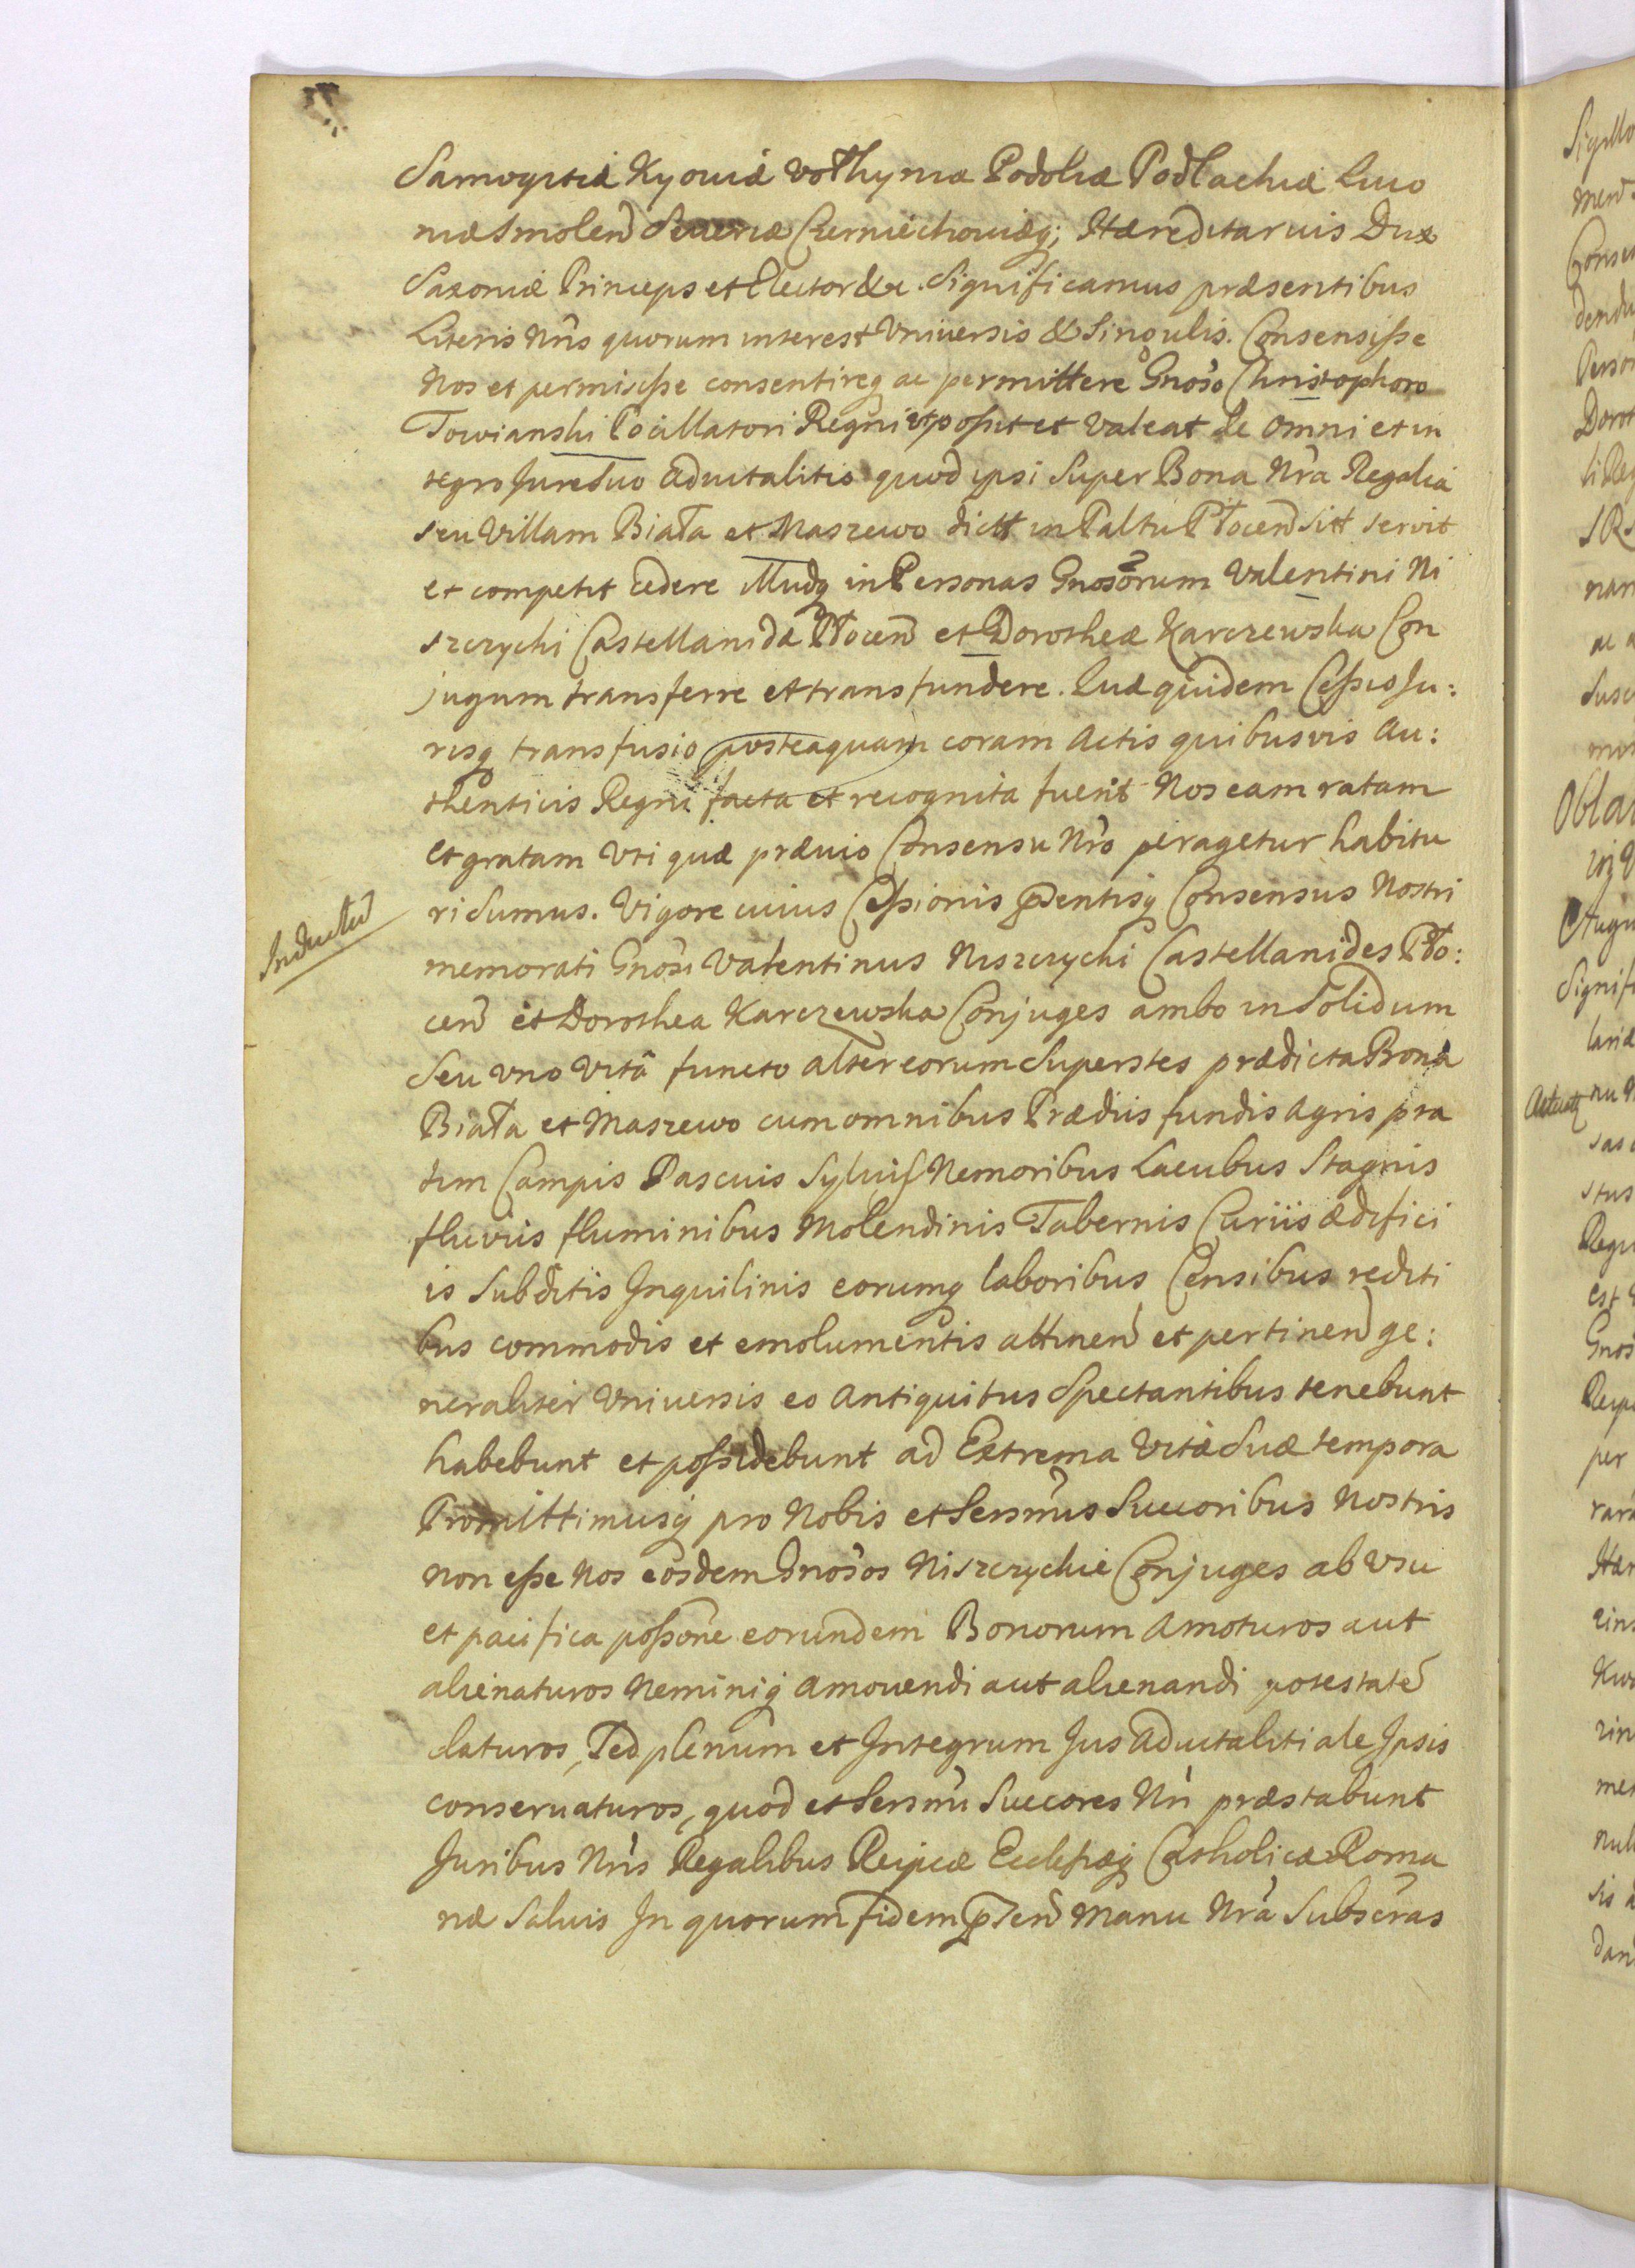 Samogitiæ Kyoviæ Vołhyniæ Podoliæ Podlachiæ Livo
niæ Smoleñ Severiæ Czerniechoviæq; Hæreditarius Dux
Saxoniæ Princeps et Elector &c. Significamus præsentibus
Literis Nris quorum interest Universis & Singulis. Consensisse
Nos et permisisse consentireq ac permittere Gnoso Christophoro
Towianski Pocillatori Regni ut possit et valeat de omni et in
tegro Jure Suo advitalitio quod ipsi Super Bona Nra Regalia
seu Villam Biała et Maszewo dictt in Palttu Płoceñ sitt servit
et competit cedere illudq in Personas Gnosorum Valentini Ni
szczycki Castellanidæ Płoceñ et Dorotheæ Karczewska Con
jugum transferre et transfundere. Quæ quidem Cessio Ju:
risq transfusio posteaquam coram Actis quibusvis Au:
thenticis Regni facta et recognita fuerit Nos eam ratam
et gratam Uti quæ prævio Consensu Nro peragetur habitu
ri sumus. Vigore cuius Cessionis pñsentisq Consensus Nostri
Inductũ
memorati Gnosi Valentinus Niszczycki Castellanides Pło:
ceñ et Dorothea Karczewska Conjuges ambo in Solidum
Seu uno vitâ functo alter eorum Superstes prædicta Bona
Biała et Maszewo cum omnibus Prædiis fundis agris pra
tim Campis Pascuis Sylvis Nemoribus Lacubus Stagnis
fluviis fluminibus Molendinis Tabernis Curiis ædifici
is Subditis Inquilinis eorumq laboribus Censibus rediti
bus commodis et emolumentis attineñ et pertineñ ge:
neraliter Universis eo antiquitus Spectantibus tenebunt
habebunt et possidebunt ad Extrema Vitæ Suæ tempora
Promittimusq pro Nobis et Serñmis Succoribus Nostris
non esse Nos eosdem Gnosos Niszczyckie Conjuges ab usu
et pacifica possone eorundem Bonorum amoturos aut
alienaturos Neminiq amovendi aut alienandi potestatẽ
daturos, Sed plenum et Integrum Jus advitalitiale Ipsis
conservaturos, quod et Serñmi Succores Nri præstabunt
Juribus Nris Regalibus Reipcæ Ecclesiæq Catholicæ Roma
næ Salvis In quorum fidem pñseñ Manu Nrã Subscras